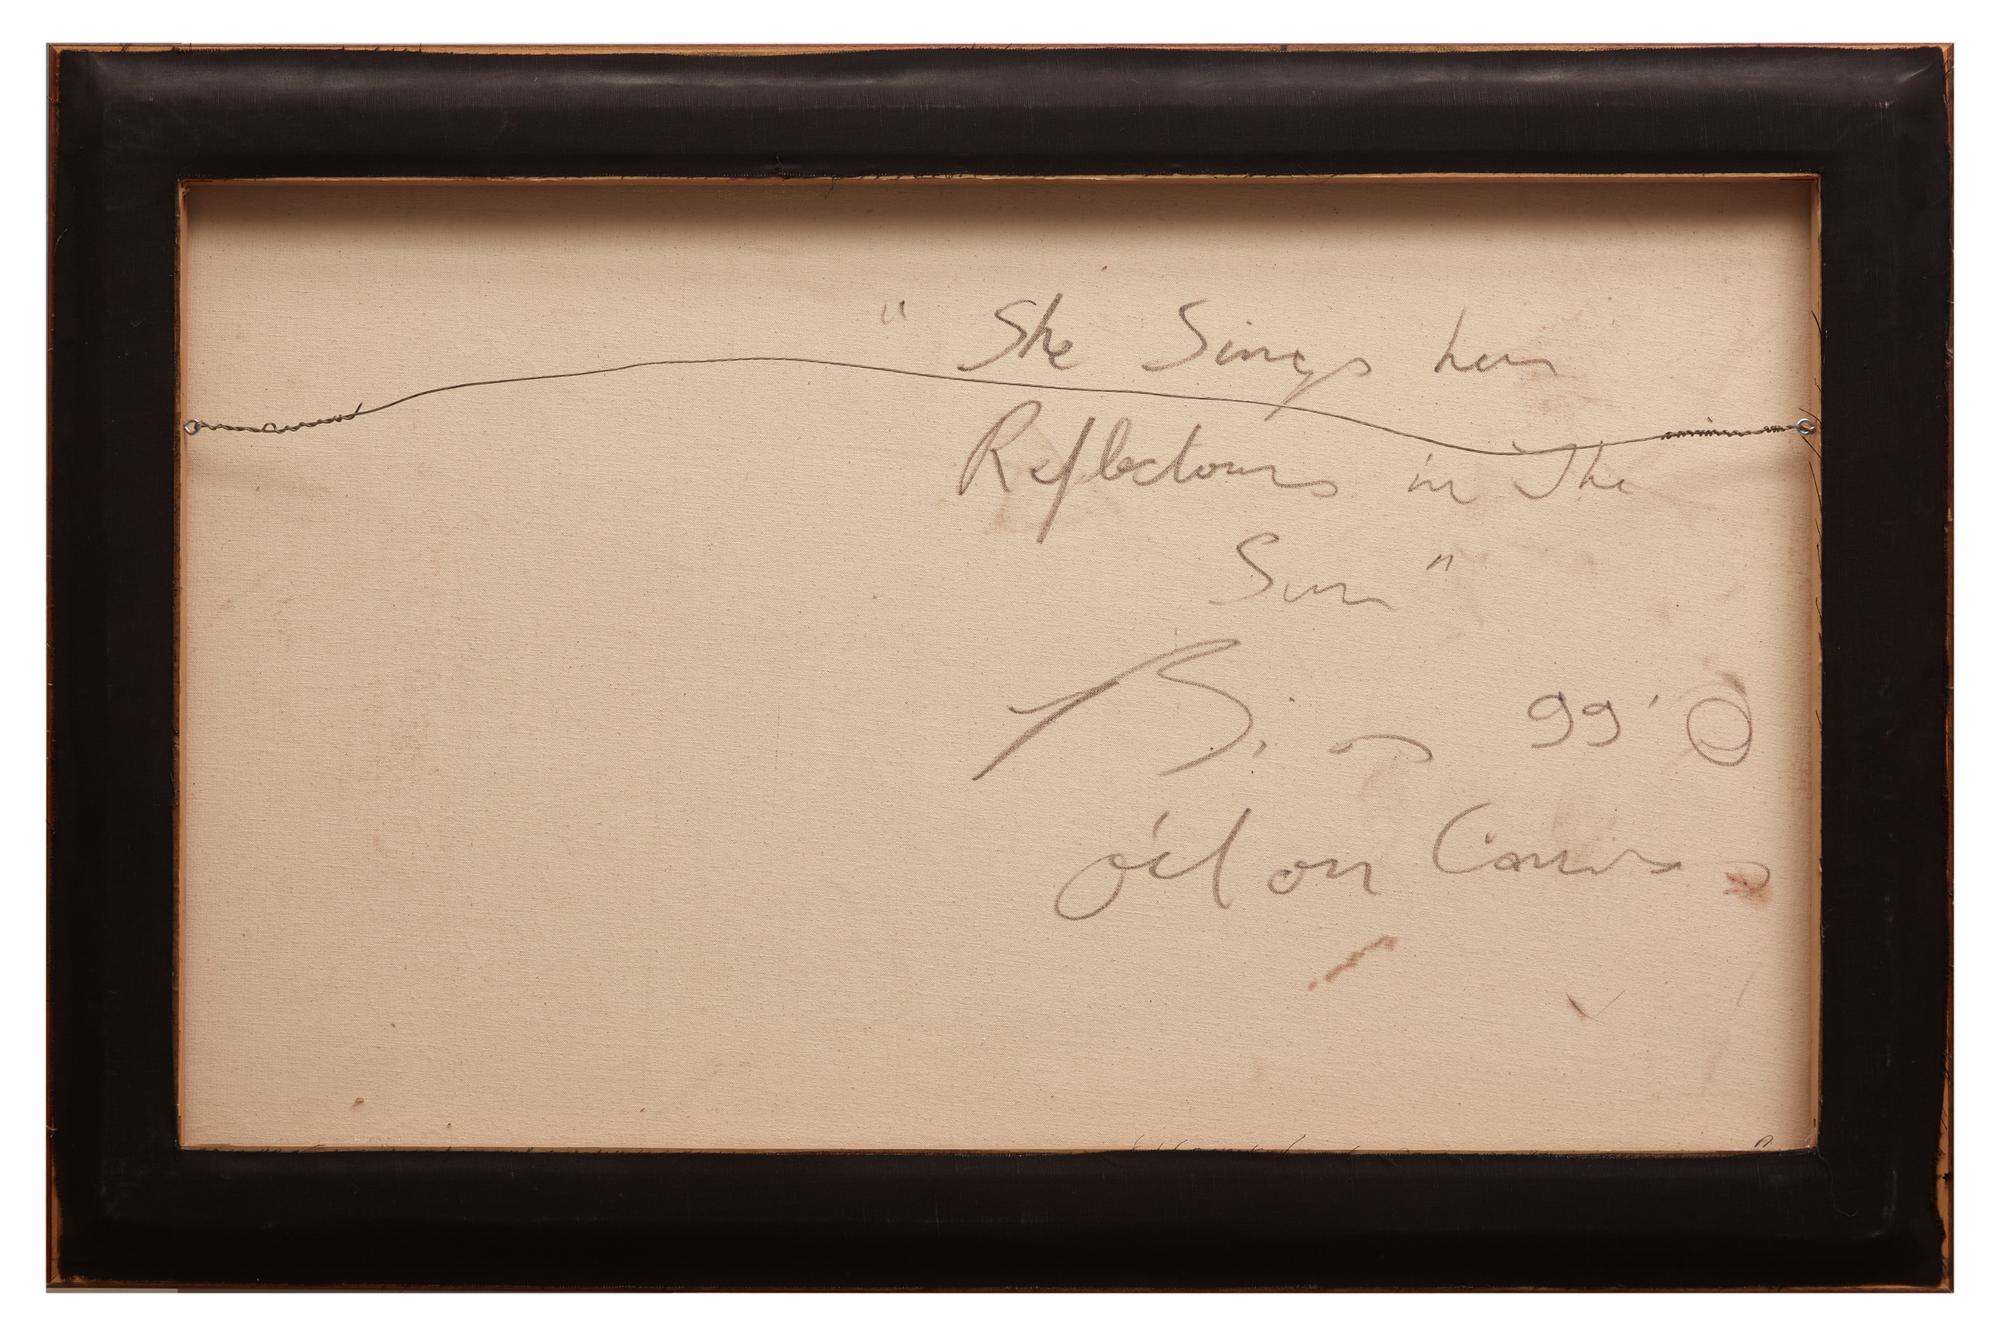 " She Sings her
Reflections in The
Sun "
99' ©
oil on Canvas